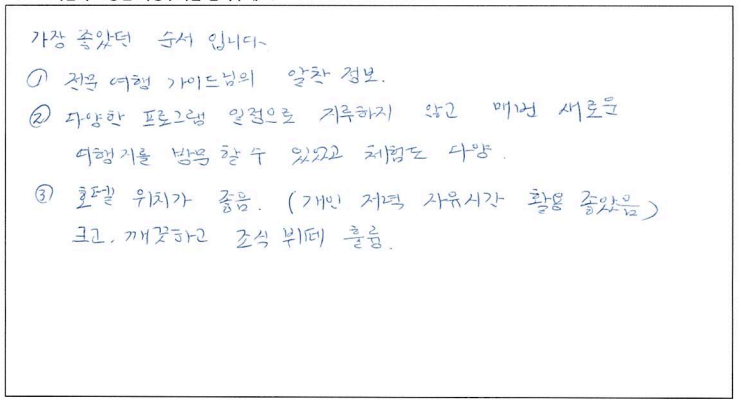 가장 좋았던 순서 입니다~
① 전문 여행 가이드님의 알찬 정보.
② 다양한 프로그램 일정으로 지루하지 않고 매번 새로운
여행지를 방문 할 수 있었고 체험도 다양.
③ 호텔 위치가 좋음. (개인 저녁 자유시간 활용 좋았음)
크고, 깨끗하고 조식 뷔페 훌륭.